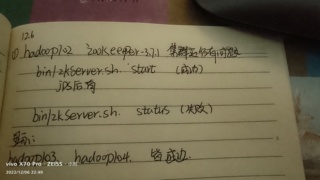 12.6
① hadoop102 zookeeper-3.7.1 集群启动有问题
bin/zkServer.sh. start (成功)
jps后有
bin/zkServer.sh. status (失败)
显示:
hadoop103 hadoop104. 皆成功.
vivo X70 Pro · ZEISS
2023/12/06 22:49